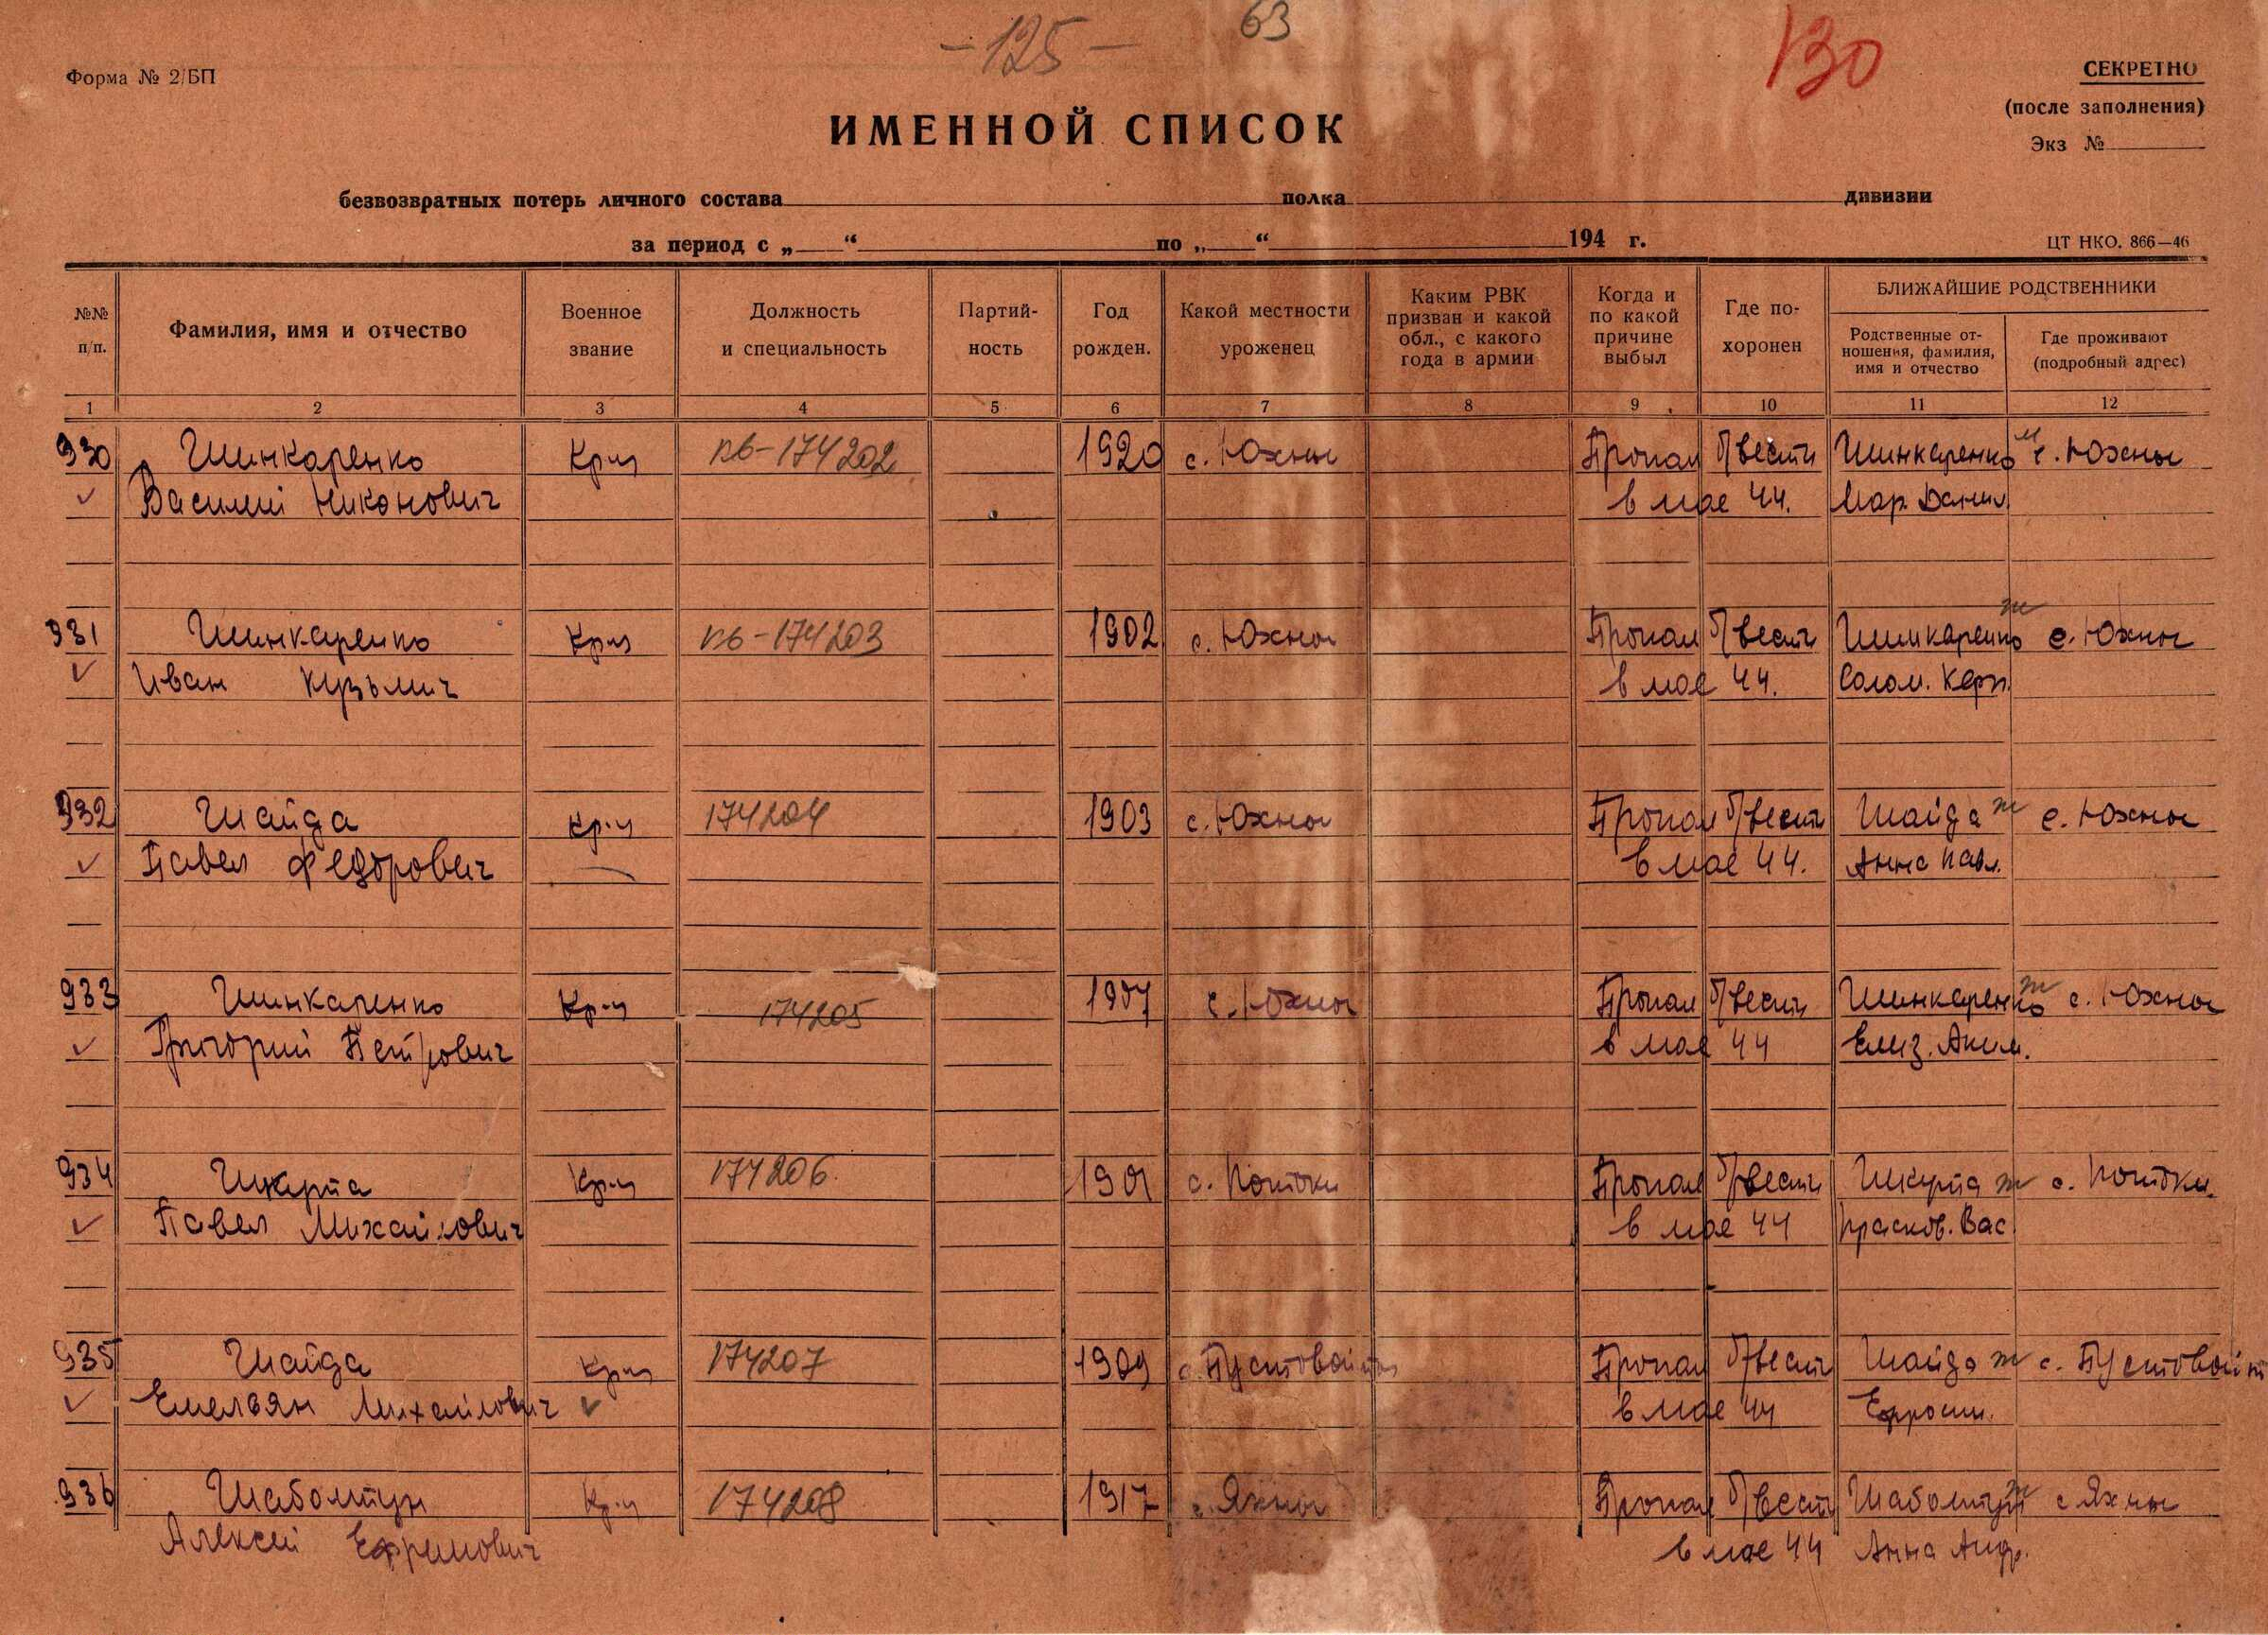 -125-
63
130
Форма № 2/БП
СЕКРЕТНО
(после заполнения)
Экз №
ИМЕННОЙ СПИСОК
безвозвратных потерь личного состава полка дивизии
за период с „ “ по „ “ 194 г.
ЦТ НКО. 866—46
№№ п/п.
Фамилия, имя и отчество
Военное звание
Должность и специальность
Партий-ность
Год рожден.
Какой местности уроженец
Каким РВК призван и какой обл., с какого года в армии
Когда и по какой причине выбыл
Где по-хоронен
БЛИЖАЙШИЕ РОДСТВЕННИКИ
Родственные от-ношения, фамилия, имя и отчество
Где проживают (подробный адрес)
1 2 3 4 5 6 7 8 9 10 11 12
930 Шинкаренко Кр-ц пв-174202 1920 с. Южны Пропал б/вести Шинкаренко м с. Южны
Василий Никонович в мае 44. Мар. Данил.
931 Шинкаренко Кр-ц пв-174203 1902 с. Южны Пропал б/вести Шинкаренко ж с. Южны
Иван Кузьмич в мае 44. Солом. Карп.
932 Шайда Кр-ц 174204 1903 с. Южны Пропал б/вести Шайда ж с. Южны
Павел Федорович в мае 44. Анна Павл.
933 Шинкаренко Кр-ц 174205 1907 с. Южны Пропал б/вести Шинкаренко ж с. Южны
Григорий Петрович в мае 44 Елиз. Аким.
934 Шкурпа Кр-ц 174206 1901 с. Потоки Пропал б/вести Шкурпа ж с. Потоки
Павел Михайлович в мае 44 Прасков. Вас
935 Шайда Кр-ц 174207 1909 с. Пустовойты Пропал б/вести Шайда ж с. Пустовойт
Емельян Михайлович в мае 44 Ефросин.
936 Шаболтун Кр-ц 174208 1917 с. Яхны Пропал б/вести Шаболтун ж с Яхны
Алексей Ефремович в мае 44 Анна Андр.